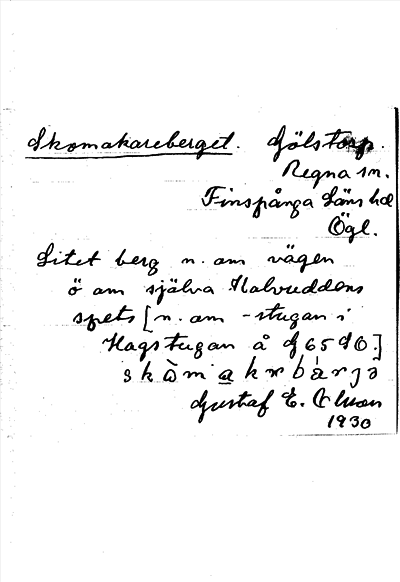 Skomakareberget. Gölstorp.
Regna sn.
Finspånga Läns hd
Ögl.
Litet berg n. om vägen
ö om själva Halvuddens
spets [n. om -stugan i
Hagstugan å
skòmakrbárjə
Gustaf E.
1930